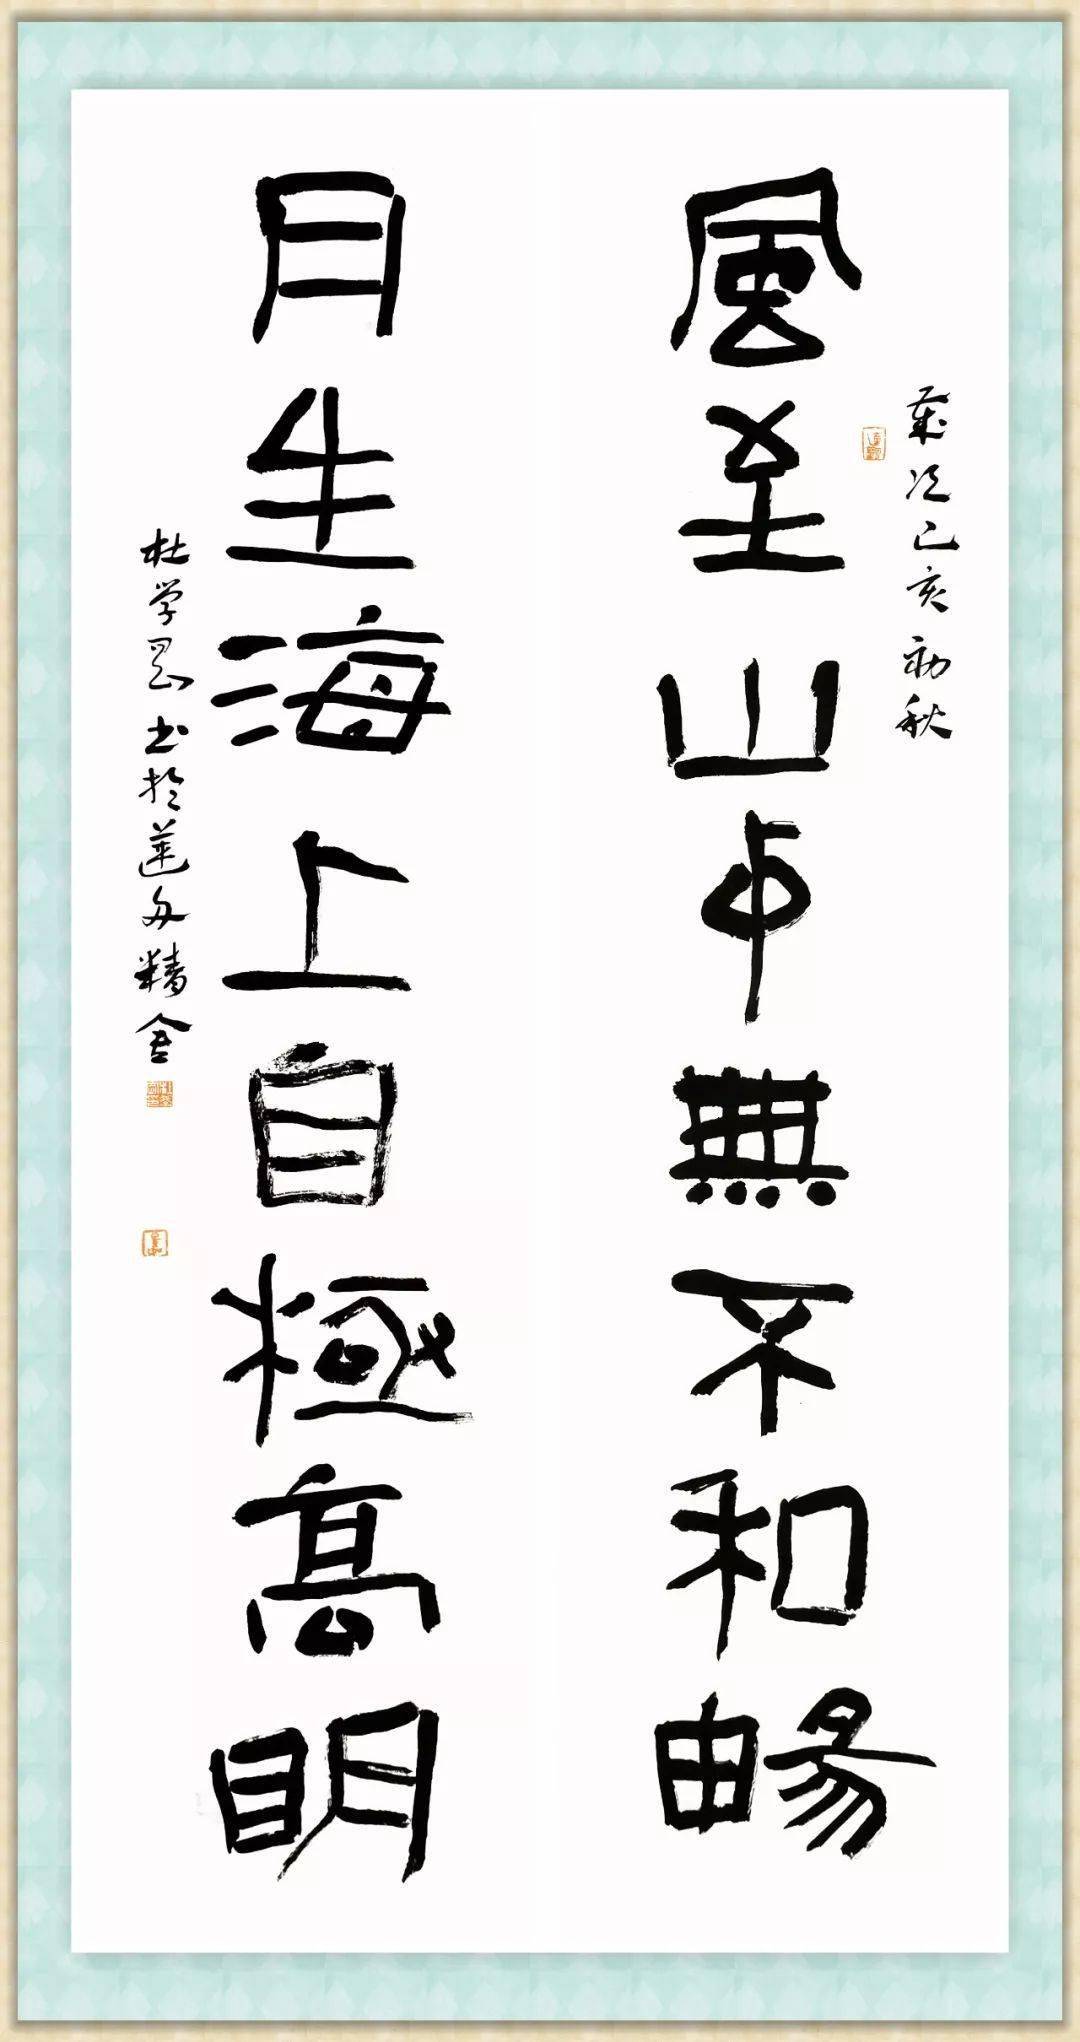 歲次己亥初秋
風至山中無不和暢
月生海上自極高明
杜学书於莲舟精舍